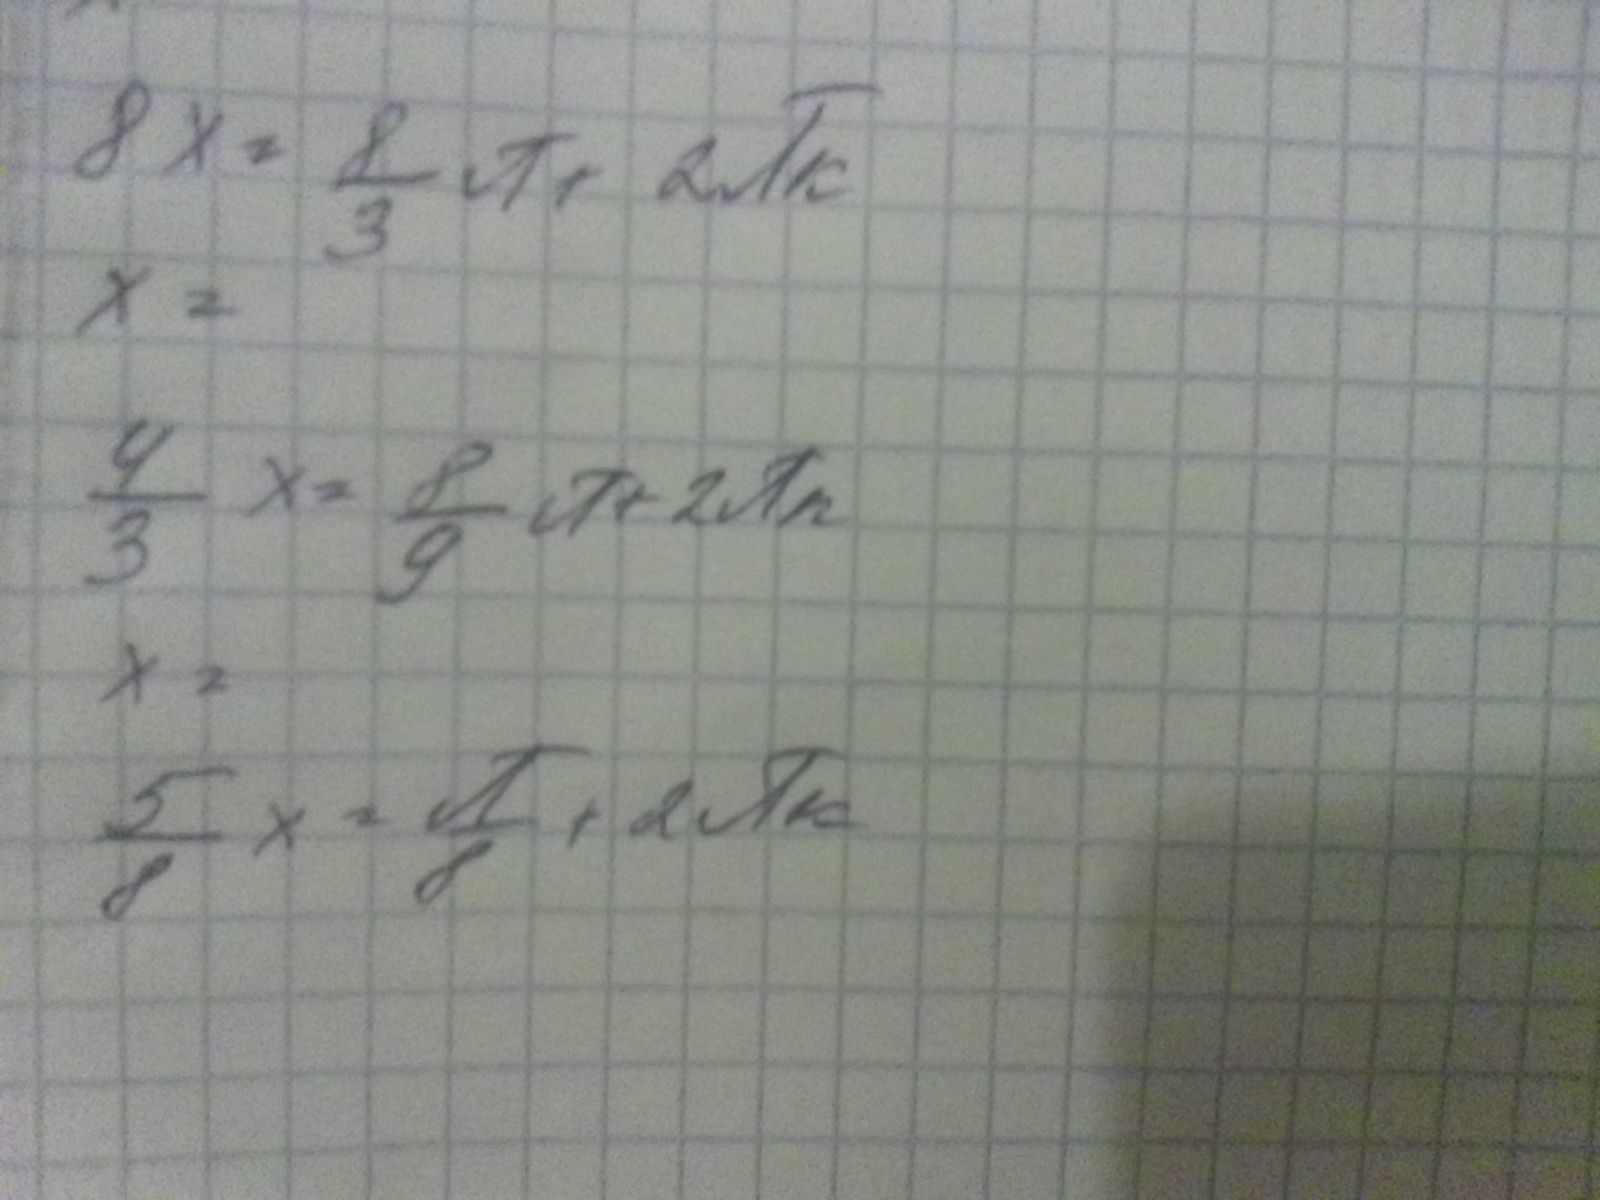 8x = 8/3 π + 2πk
x =
4/3 x = 8/9 π + 2πn
x =
5/8 x = π/8 + 2πk